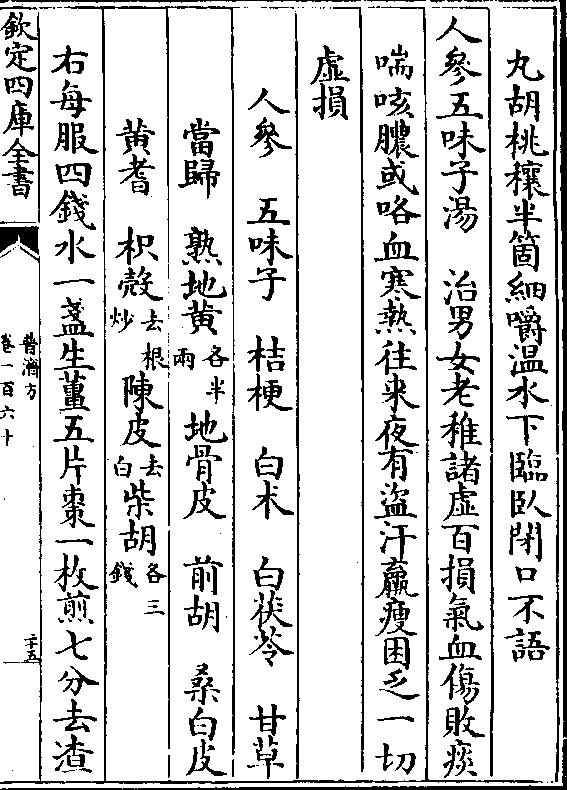 丸胡桃穰半箇細嚼温水下臨臥閉口不語
人參五味子湯　治男女老稚諸虛百損氣血傷敗痰
喘咳膿或咯血寒熱往來夜有盜汗羸瘦困乏一切
虛損
人參　五味子　桔梗　白术　白茯苓　甘草
當歸　熟地黄各半兩　地骨皮　前胡　桑白皮
黄耆　枳殼去根炒　陳皮去白　柴胡各三錢
右每服四錢水一盞生薑五片棗一枚煎七分去渣
欽定四庫全書
普濟方
卷一百六十
二十五